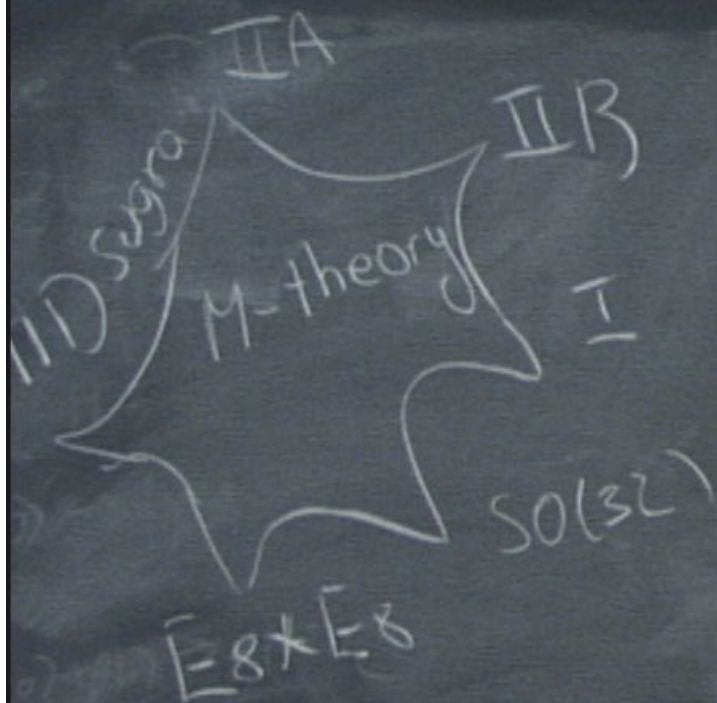 IIA
IIB
11D Sugra
M-theory
I
SO(32)
E8xE8